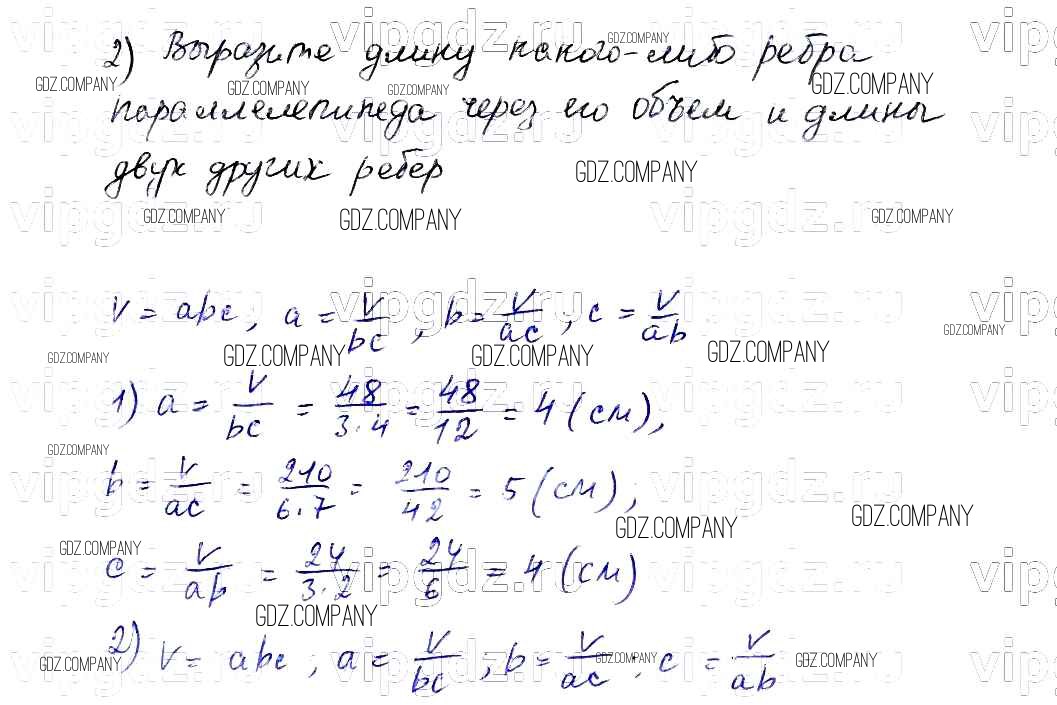 2) Выразите длину какого-либо ребра
параллелепипеда через его объем и длины
двух других ребер
V = abc, a = V/bc, b = V/ac, c = V/ab
1) a = V/bc = 48/3·4 = 48/12 = 4 (см),
b = V/ac = 210/6·7 = 210/42 = 5 (см),
c = V/ab = 24/3·2 = 24/6 = 4 (см)
2) V = abc, a = V/bc, b = V/ac, c = V/ab
vipgdz.ru
GDZ.COMPANY